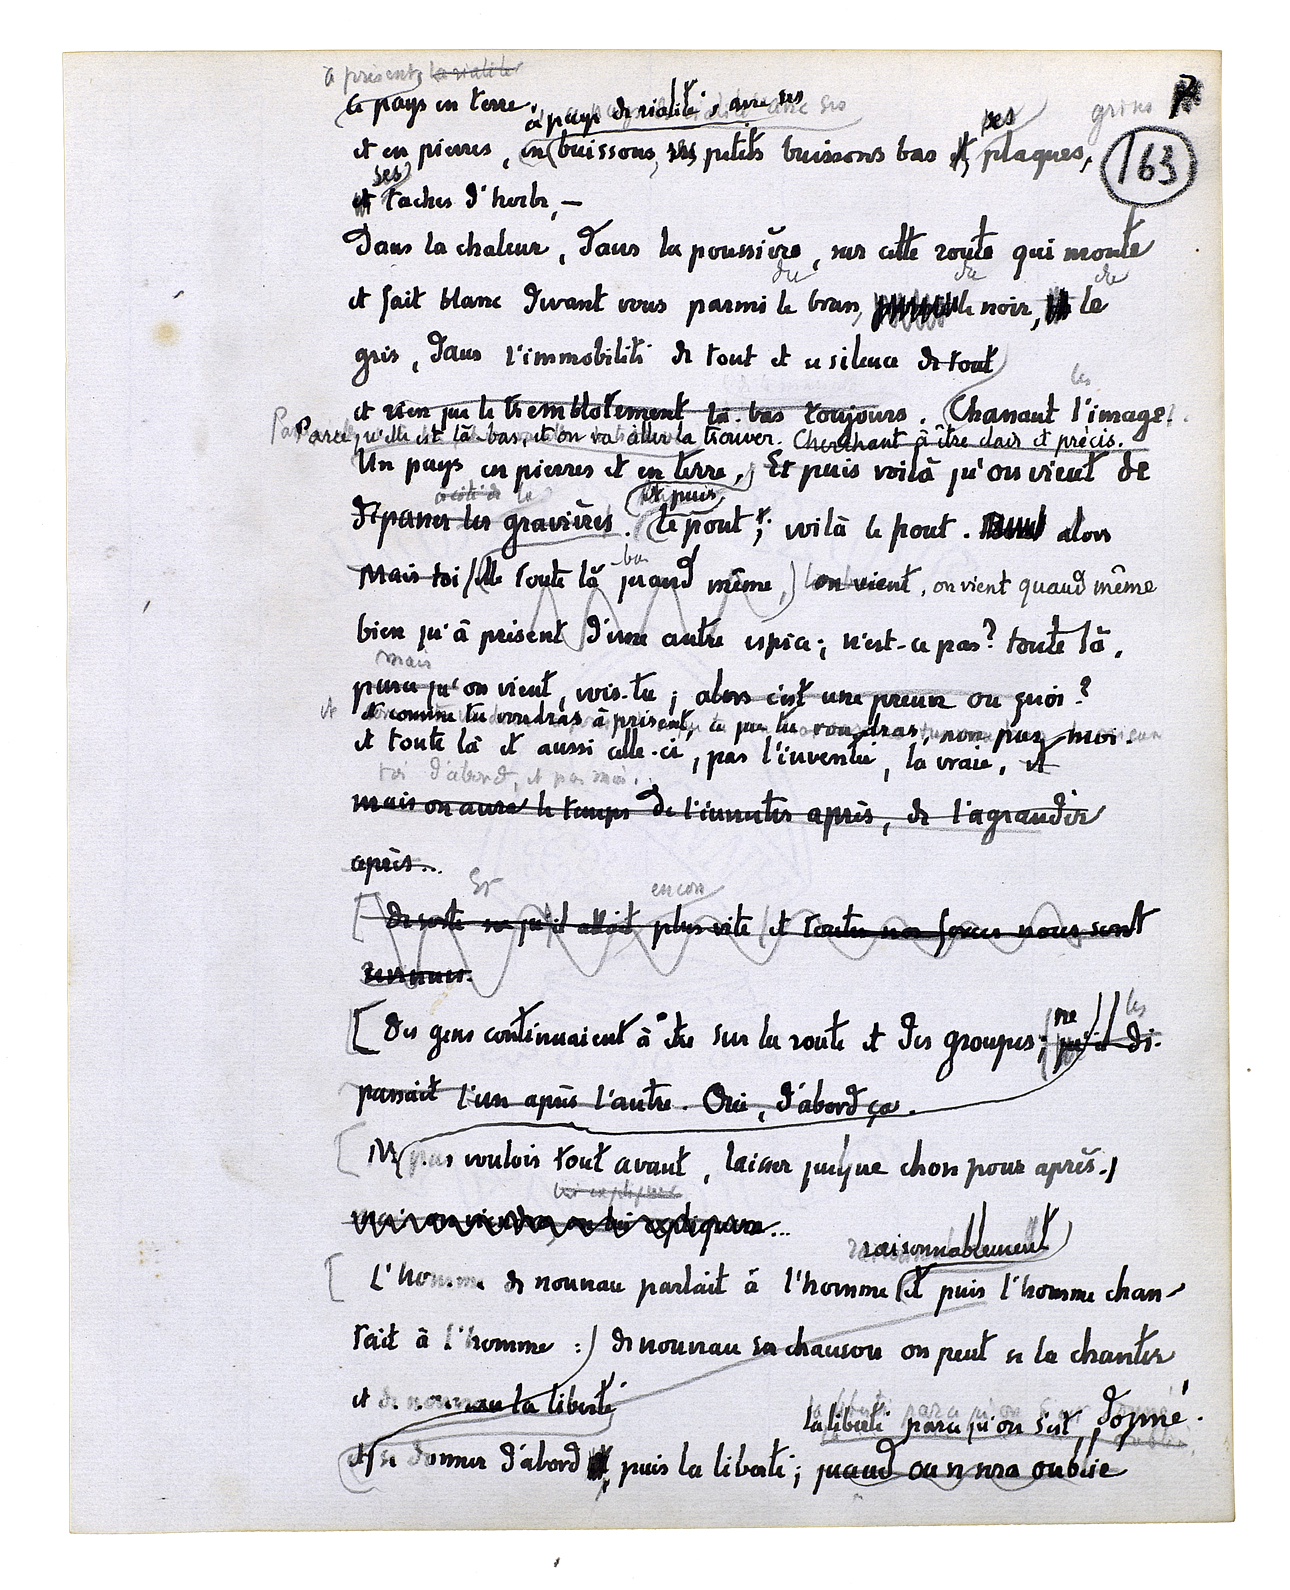 à présent, la réalité
ce pays en terre
ce pays de réalité, avec ses
ses
grises
163
et en pierres, en buissons, ses petits buissons bas, plaques,
ses
et taches d'herbe, —
Dans la chaleur, dans la poussière, sur cette route qui monte
du du du
et fait blanc devant vous parmi le brun, le noir, le
gris, dans l'immobilité de tout et ce silence de tout
les
et rien que le tremblotement là-bas toujours. Chassant l'image.
Parce qu'elle est là-bas, et on va aller la trouver. Cherchant à être clair et précis.
Un pays en pierres et en terre. Et puis voilà qu'on vient de
à côté de la
et puis
dépasser les gravières. Le pont ; voilà le pont. alors
bas
Mais toi elle toute là quand même, on vient, on vient quand même
bien qu'à présent d'une autre espèce ; n'est-ce pas ? toute là,
mais
parce qu'on vient, vois-tu ; alors c'est une preuve ou quoi ?
et comme tu voudras à présent, ce que tu voudras, non pas moi.
et toute là et aussi celle-ci, pas l'inventée, la vraie, et
toi d'abord, et pas moi.
mais on aura le temps de l'inventer après, de l'agrandir
après...
Et encore
de sorte qu'il allait plus vite et toutes nos forces nous sont
revenues.
ne les
Des gens continuaient à être sur la route et des groupes ; qu'il dé-
passait l'un après l'autre. Oui, d'abord ça.
Ne pas vouloir tout avant, laisser quelque chose pour après.
lui expliquer
mais on viendra, on lui expliquera...
raisonnablement
L'homme de nouveau parlait à l'homme et puis l'homme chan-
tait à l'homme : de nouveau sa chanson on peut se la chanter
et de nouveau la liberté
la liberté parce qu'on s'est donné.
et se donner d'abord, puis la liberté ; quand on se sera oublié